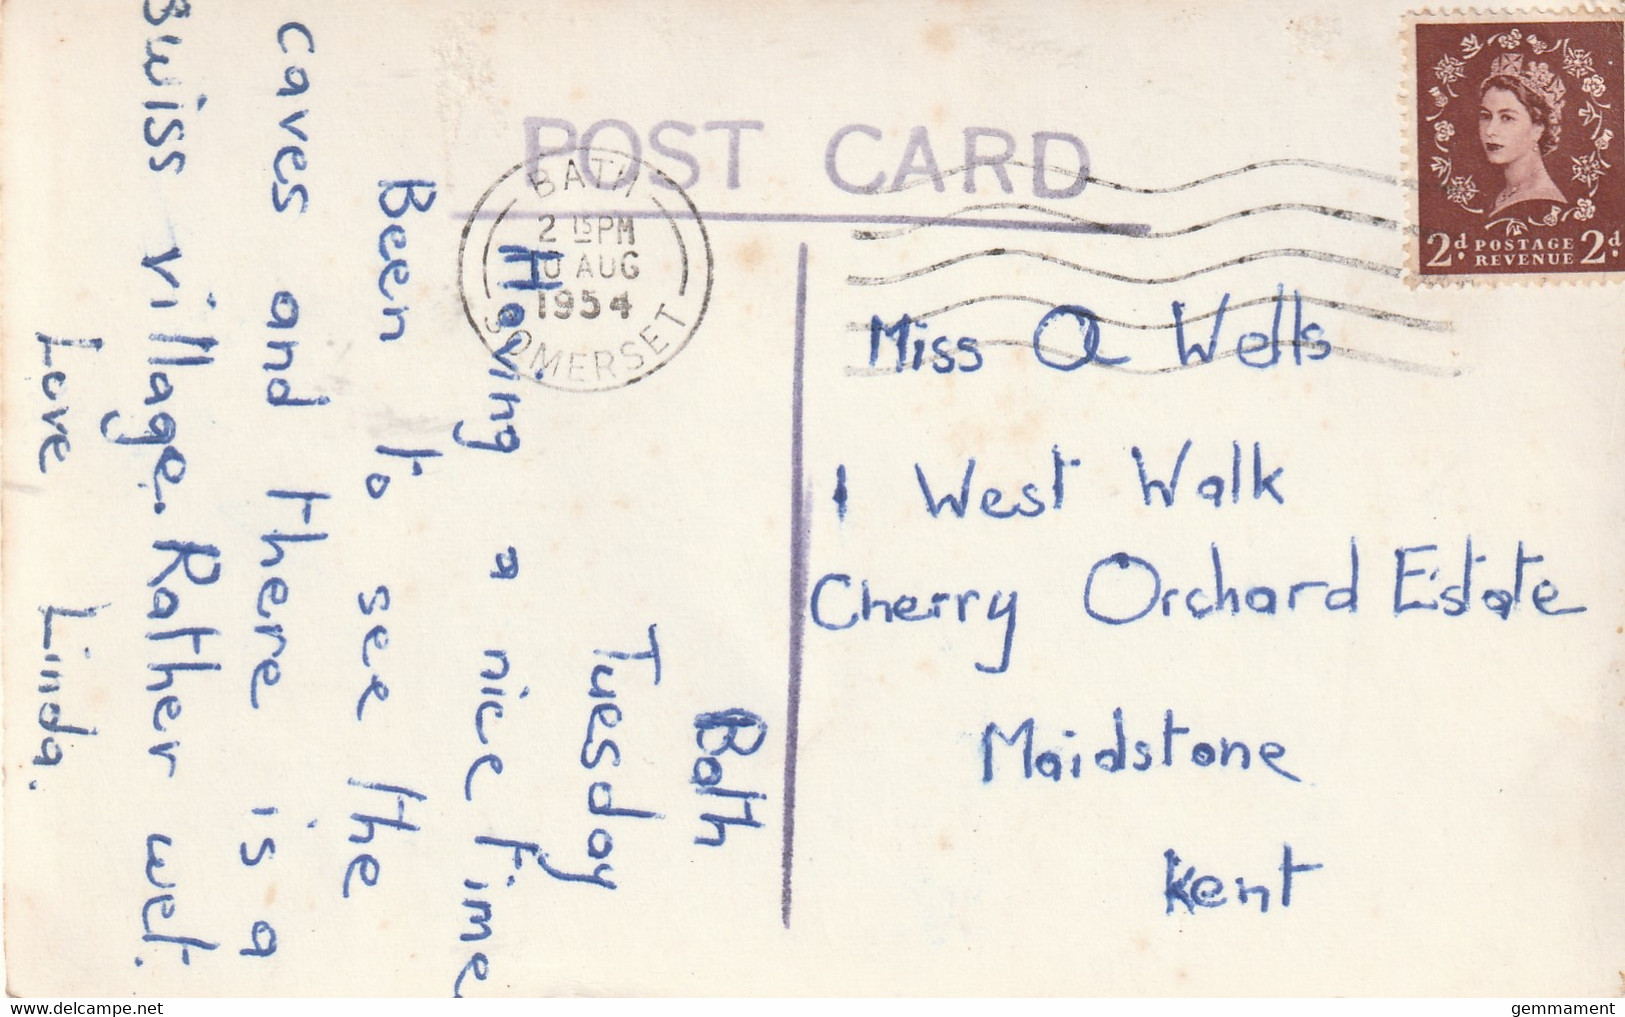 POST CARD
BATH
2 15PM
0 AUG
1954
SOMERSET
2d POSTAGE 2d
REVENUE
Bath
Tuesday
Having a nice time
Been to see the
caves and there is a
Swiss village. Rather wet.
Love Linda.
Miss A Wells
1 West Walk
Cherry Orchard Estate
Maidstone
Kent
www.delcampe.net
gemmament